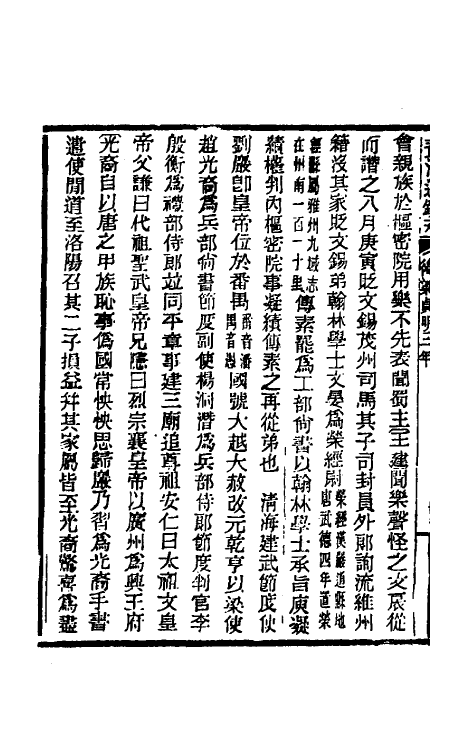 會親族於樞密院用樂不先表聞蜀主王建聞樂聲怪之文扆從
而譖之八月庚寅貶文錫茂州司馬其子司封員外郎詢流維州
籍沒其家貶文錫弟翰林學士文晏爲榮經尉榮經漢嚴道縣地唐武德四年置榮
經縣屬雅州九域志在州南一百一十里傳素罷爲工部尚書以翰林學士承旨庾凝
績權判內樞密院事凝績傳素之再從弟也　清海建武節度使
劉巖卽皇帝位於番禺番音潘禺音愚國號大越大赦改元乾亨以梁使
趙光裔爲兵部尚書節度副使楊洞潛爲兵部侍郎節度判官李
殷衡爲禮部侍郎並同平章事建三廟追尊祖安仁曰太祖文皇
帝父謙曰代祖聖武皇帝兄隱曰烈宗襄皇帝以廣州爲興王府
光裔自以唐之甲族恥事僞國常怏怏思歸巖乃習爲光裔手書
遣使間道至洛陽召其二子損益幷其家屬皆至光裔驚喜爲盡